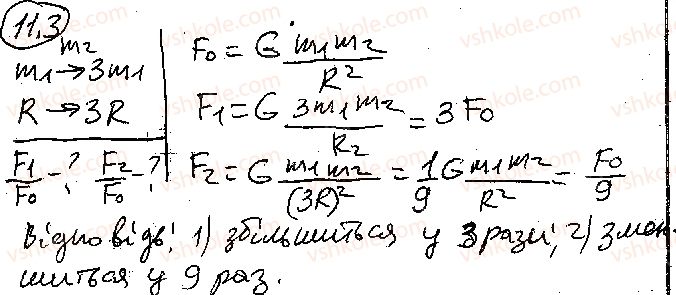 11.3
m₂
m₁ → 3m₁
R → 3R
F₁/F₀ - ? F₂/F₀ - ?
F₀ = G m₁m₂/R²
F₁ = G 3m₁m₂/R₂ = 3F₀
F₂ = G m₁m₂/(3R)² = 1/9 G m₁m₂/R² = F₀/9
Відповідь: 1) збільшиться у 3 рази; 2) змен-
шиться у 9 раз.